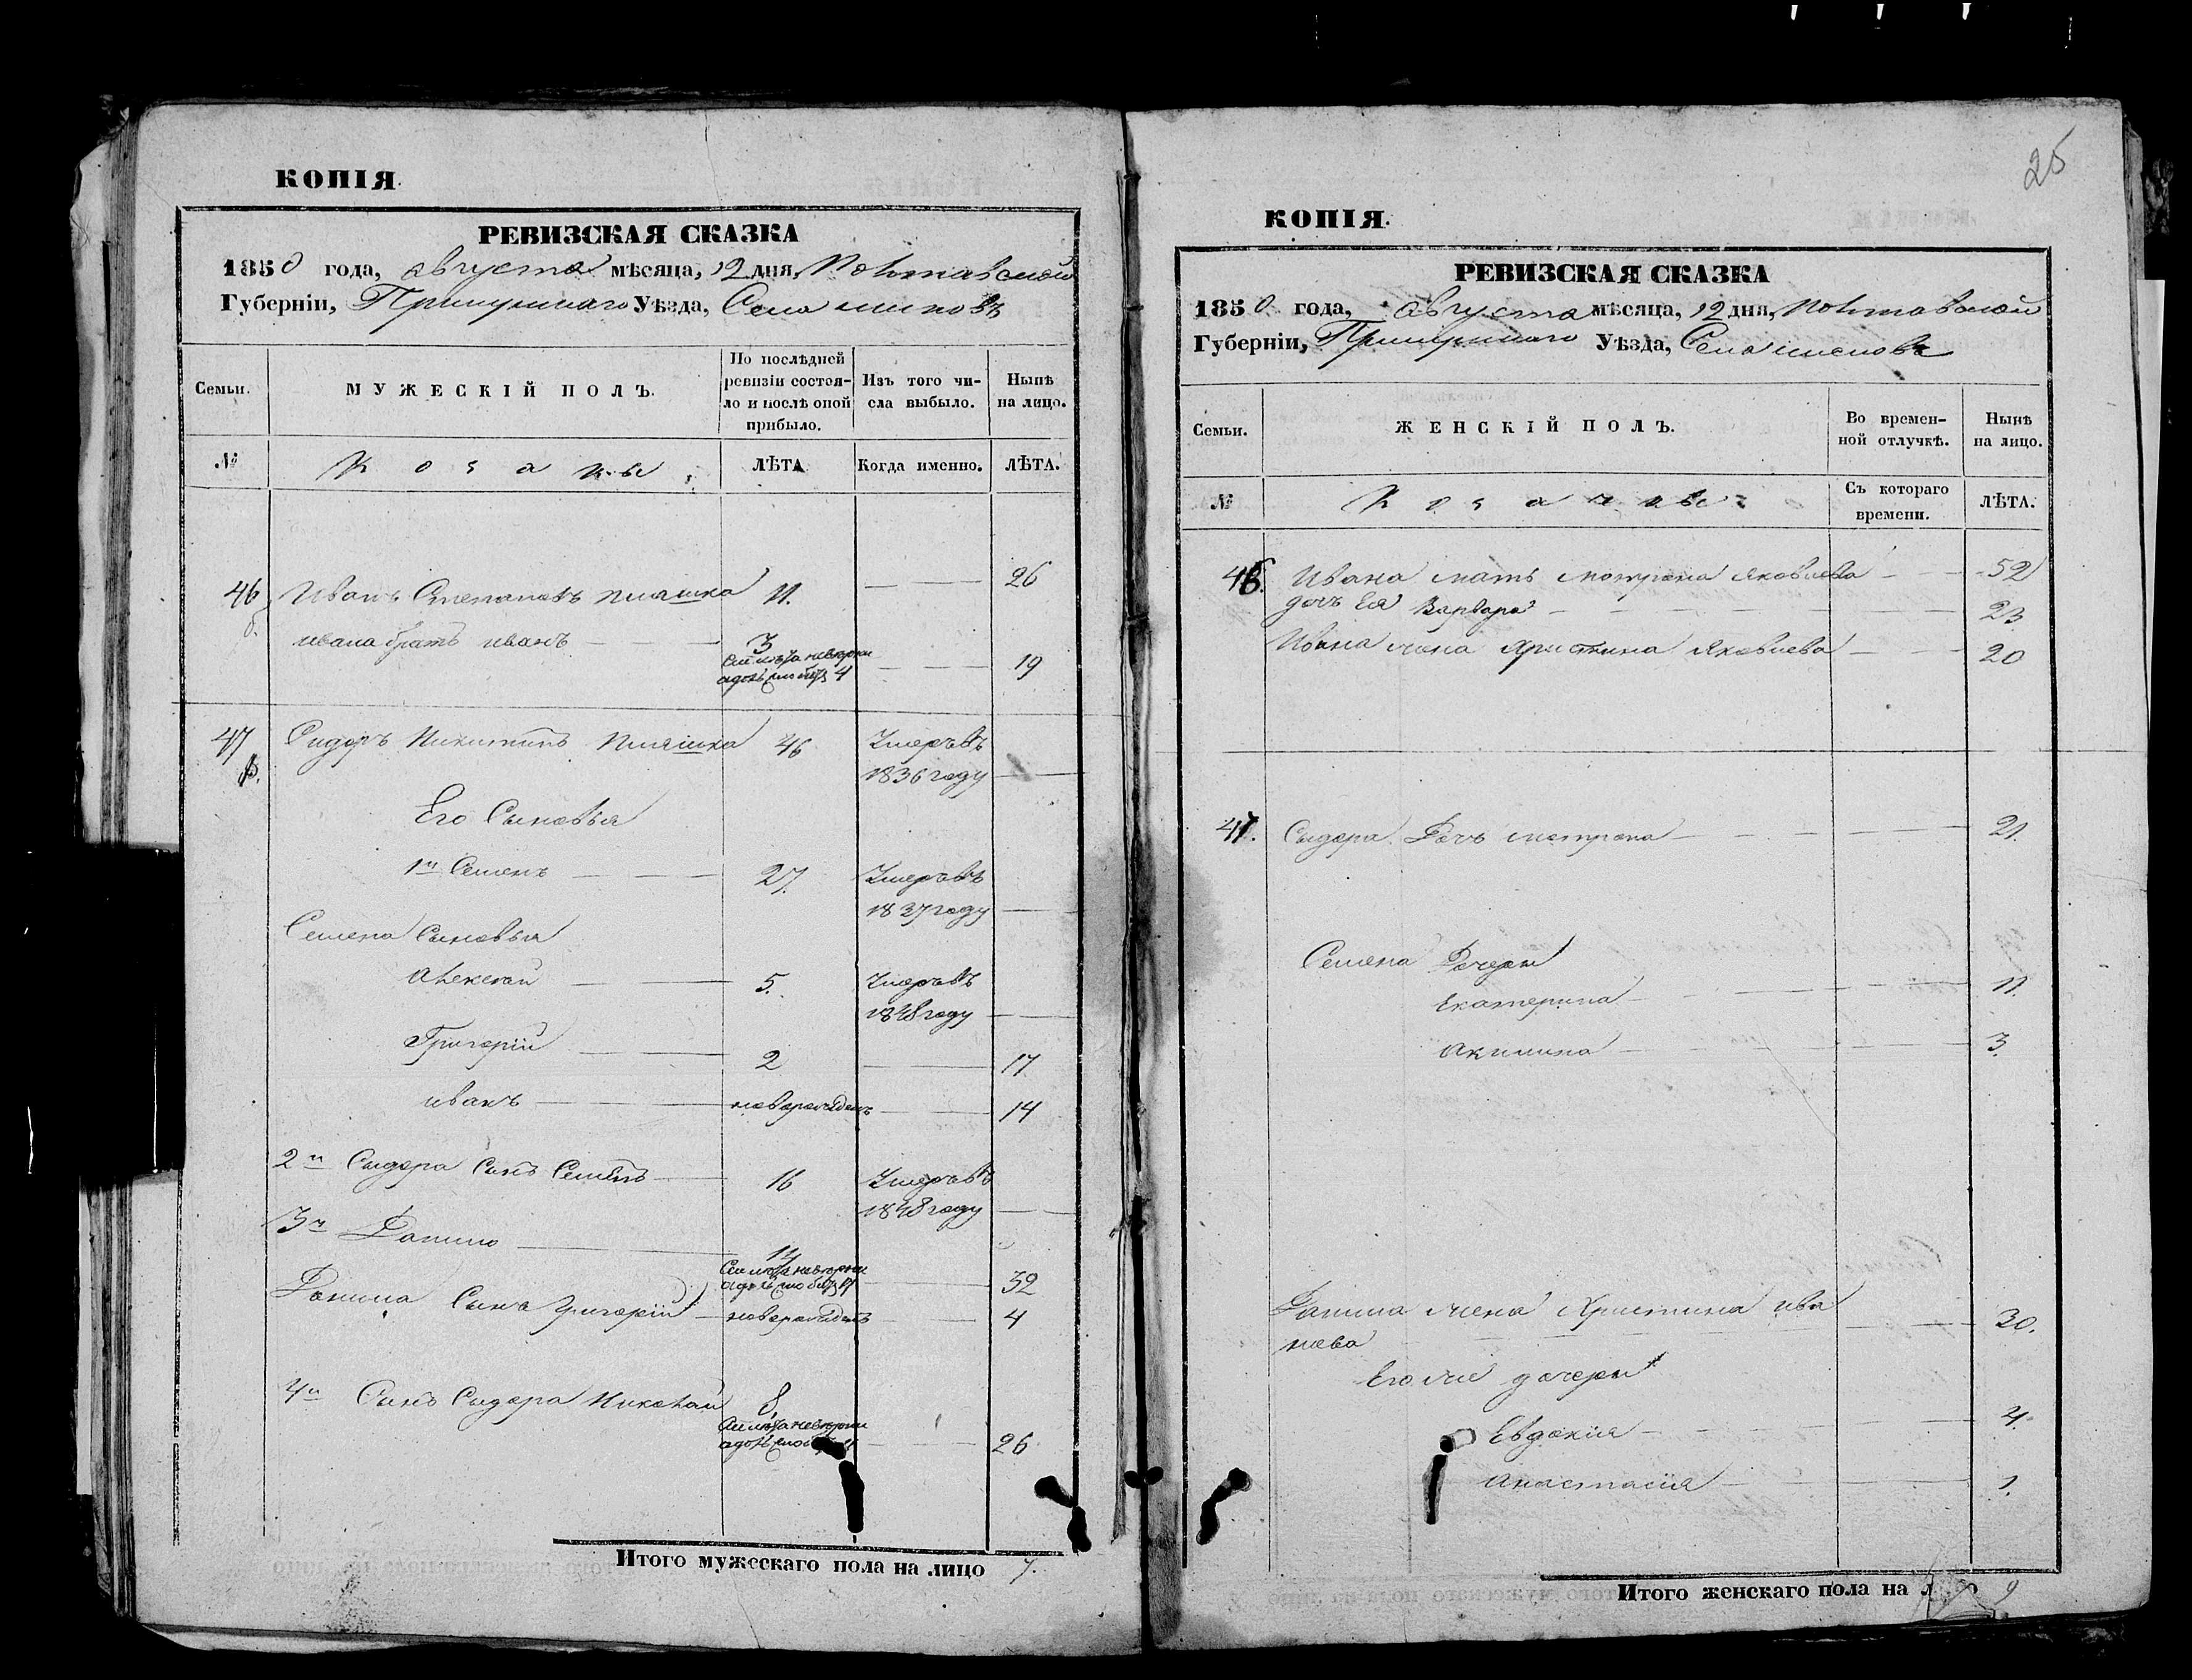 КОПІЯ.
РЕВИЗСКАЯ СКАЗКА
1850 года, августа мѣсяца, 12 дня, Полтавской
Губерніи, Прилуцкаго Уѣзда, Села
Семьи.
МУЖЕСКІЙ ПОЛЪ.
По послѣдней
ревизіи состоя-
ло и послѣ оной
прибыло.
Изъ того чи-
сла выбыло.
Нынѣ
на лицо.
№
Козаки
ЛѢТА
Когда именно.
ЛѢТА.
46 Иванъ Степановъ 11. — 26
Ивана братъ Иванъ — 3 — 19
47 Сидоръ Никитинъ 46 Умеръ въ
1836 году —
Его Сыновья
1й Семенъ — 27. Умеръ въ
1837 году —
Семена Сыновья
Алексей — 5. Умеръ въ
1848 году —
Григорій — 2 — 17
Иванъ — новорожденъ — 14
2й Сыдора Сынъ Семенъ — 16 Умеръ въ
1848 году —
3й Данило — 14
— 32
Данила Сынъ Григорій — новорожденъ — 4
4й Сынъ Сидора Николай 8,
— 26
Итого мужескаго пола на лицо 7.
25
КОПІЯ.
РЕВИЗСКАЯ СКАЗКА
1850 года, августа мѣсяца, 12 дня, Полтавской
Губерніи, Прилуцкаго Уѣзда, Села
Семьи.
ЖЕНСКІЙ ПОЛЪ.
Во времен-
ной отлучкѣ.
Нынѣ
на лицо.
№
Козачки
Съ котораго
времени.
ЛѢТА.
46. Ивана мать Мотрона Яковлева — 52
дочь Ея Варвара — 23
Ивана жена Христина Яковлева — 20
47. Сыдора Дочь Мотрона — 21.
Семена Дочери
Екатерина — 11.
Акилина — 3.
Данила жена Христина Ива
нова — 30.
Его же дочери
Евдокія — 4.
Анастасія — 1.
Итого женскаго пола на 9